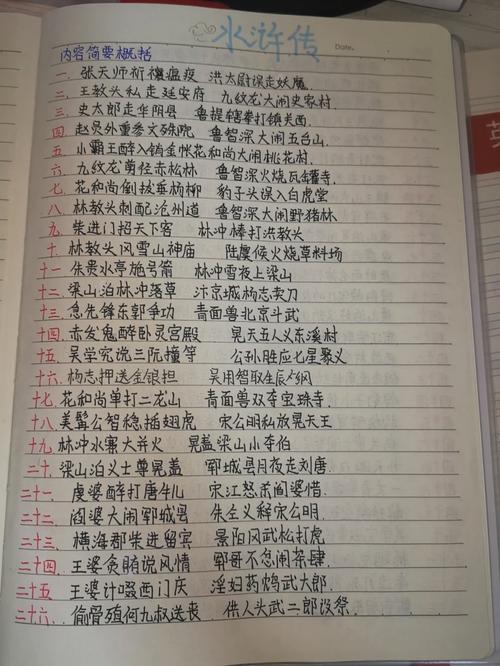 水浒传
Date.
内容简要概括
一、张天师祈禳瘟疫 洪太尉误走妖魔
二、王教头私走延安府 九纹龙大闹史家村
三、史太郎走华阴县 鲁提辖拳打镇关西
四 赵员外重参文殊院 鲁智深大闹五台山.
五 小霸王醉入销金帐花和尚大闹桃花村.
六、九纹龙剪径赤松林 鲁智深火烧瓦罐寺
七、花和尚倒拔垂杨柳 豹子头误入白虎堂
八、林教头刺配沧州道 鲁智深大闹野猪林
九、柴进门招天下客 林冲棒打洪教头
十、林教头风雪山神庙 陆虞候火烧草料场
十一 朱贵水亭施号箭 林冲雪夜上梁山
十二、梁山泊林冲落草 汴京城杨志卖刀
十三、急先锋东郭争功 青面兽北京斗武
十四、赤发鬼醉卧灵宫殿 晁天五人义东溪村
十五、吴学究说三阮撞筹 公孙胜应七星聚义
十六、杨志押送金银担 吴用智取生辰纲
十七、花和尚单打二龙山 青面兽双夺宝珠寺.
十八、美髯公智稳插翅虎 宋公明私放晁天王
十九、林冲水寨大并火 晁盖梁山小夺伯
二十、梁山泊义士尊晁盖 郓城县月夜走刘唐
二十一、虔婆醉打唐牛儿 宋江怒杀阎婆惜.
二十二、阎婆大闹郓城县 朱仝义释宋公明.
二十三、横海郡柴进留宾 景阳冈武松打虎
二十四、王婆贪贿说风情 郓哥不忿闹茶肆
二十五 王婆计啜西门庆 淫妇药鸩武大郎.
二十六、偷骨殖何九叔送丧 供人头武二郎设祭.